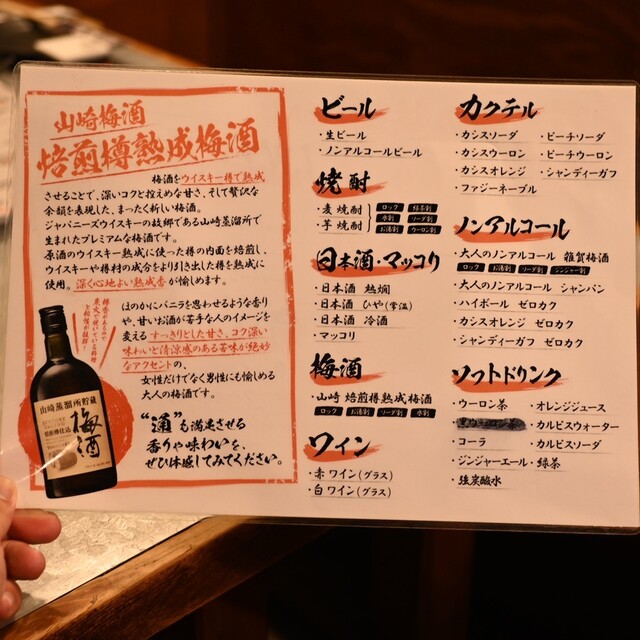 山崎梅酒
焙煎樽熟成梅酒
梅酒をウイスキー樽で熟成
させることで、深いコクと控えめな甘さ、そして贅沢な
余韻を表現した、まったく新しい梅酒。
ジャパニーズウイスキーの故郷である山崎蒸溜所で
生まれたプレミアムな梅酒です。
原酒のウイスキー熟成に使った樽の内面を焙煎し、
ウイスキーや樽材の成分をより引き出した樽を熟成に
使用。深く心地よい熟成香が愉しめます。
ほのかにバニラを思わせるような香り
や、甘いお酒が苦手な人のイメージを
変えるすっきりとした甘さ、コク深い
味わいと清涼感のある苦味が絶妙
なアクセントの、
女性だけでなく男性にも愉しめる
大人の梅酒です。
“通”も満足させる
香りや味わいを、
ぜひ体感してみてください。
山崎蒸溜所貯蔵
焙煎樽仕込
梅酒
ビール
・生ビール
・ノンアルコールビール
焼酎
・麦焼酎
・芋焼酎
ロック 緑茶割
水割 ソーダ割
お湯割 ウーロン割
日本酒・マッコリ
・日本酒 熱燗
・日本酒 ひや(常温)
・日本酒 冷酒
・マッコリ
梅酒
・山崎 焙煎樽熟成梅酒
ロック お湯割 ソーダ割 水割
ワイン
・赤ワイン(グラス)
・白ワイン(グラス)
カクテル
・カシスソーダ ・ピーチソーダ
・カシスウーロン ・ピーチウーロン
・カシスオレンジ ・シャンディーガフ
・ファジーネーブル
ノンアルコール
・大人のノンアルコール 雑賀梅酒
ロック お湯割 ソーダ割 ジンジャー割
・大人のノンアルコール シャンパン
・ハイボール ゼロカク
・カシスオレンジ ゼロカク
・シャンディーガフ ゼロカク
ソフトドリンク
・ウーロン茶 ・オレンジジュース
・カルピスウォーター
・コーラ ・カルピスソーダ
・ジンジャーエール ・緑茶
・強炭酸水